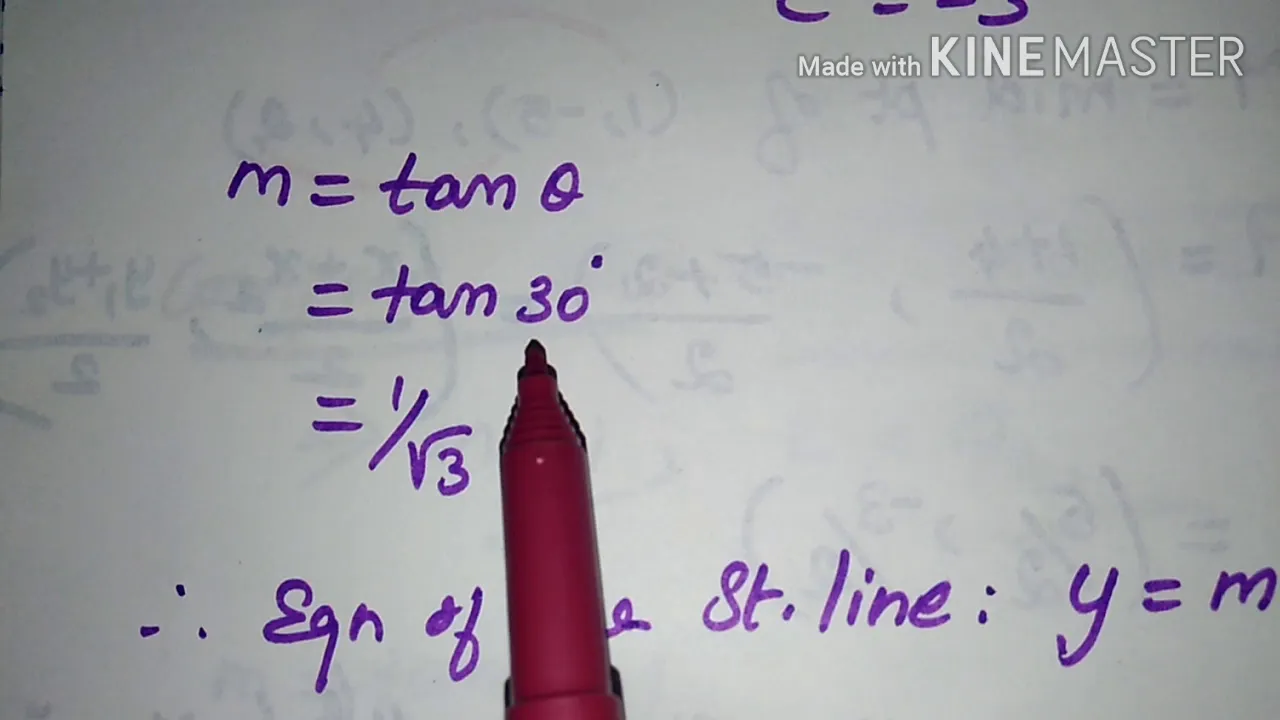 Made with KINEMASTER
m = tan θ
= tan 30°
= 1/√3
∴ Eqn of St. line: y = m